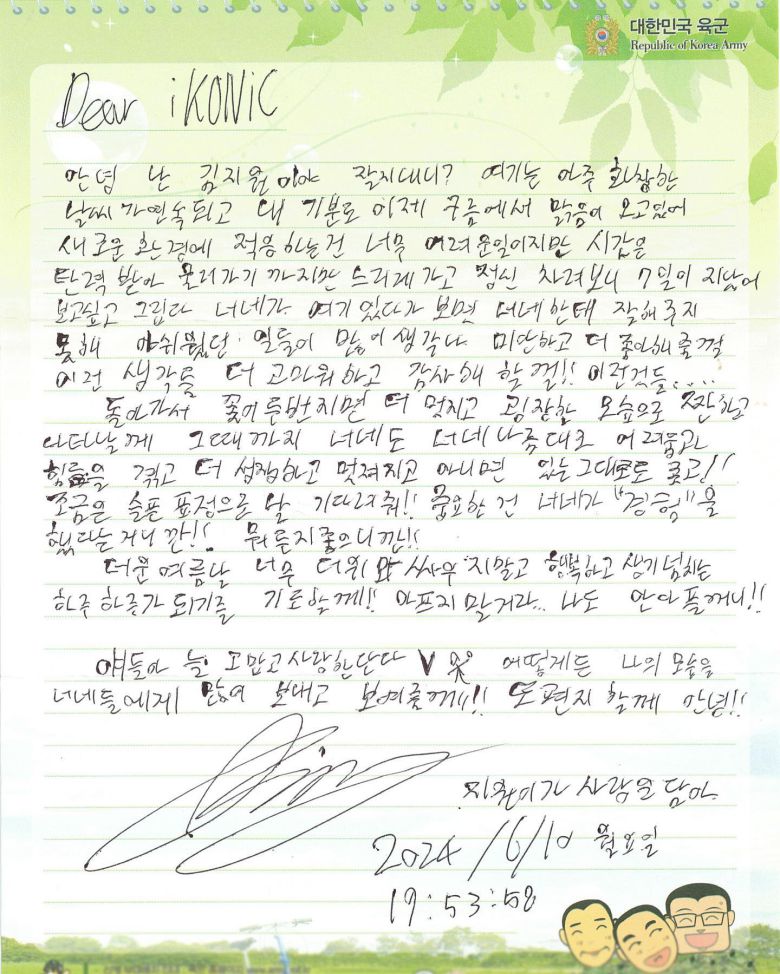 대한민국 육군
Republic of Korea Army
Dear iKONIC
안녕 난 김지원이야 잘지내니? 여기는 아주 화창한
날씨가 연속되고 내 기분도 이제 구름에서 맑음이 오고있어
새로운 환경에 적응하는건 너무 어려운일이지만 시간은
탄력 받아 굴러가기 까지만 느리게 가고 정신 차려보니 7일이 지났어
보고싶고 그립다 너네가 여기 있다가 보면 너네한테 잘해주지
못해 아쉬웠던 일들이 많이 생각나 미안하고 더 좋아해줄껄
이런 생각들 더 고마워하고 감사해 할껄!! 이런것들....
돌아가서 꽃이 두번지면 더 멋지고 굉장한 모습으로 짠하고
나타날께 그때까지 너네도 너네나름대로 어려움과
힘듦을 겪고 더 성장하고 멋져지고 아니면 있는 그대로도 좋고!!
조금은 슬픈 표정으로 날 기다려줘!! 중요한 건 너네가 "경험"을
했다는 거니깐!! 뭐든지좋으니깐!!
더운여름날 너무 더위와 싸우지말고 행복하고 생기 넘치는
하루 하루가 되기를 기도할께!! 아프지 말거라.. 나도 안아플꺼니!!
얘들아 늘 고맙고사랑한단다 V 어떻게든 나의 모습을
너네들에게 많이 보내고 보여줄께!! 또 편지 할께 안녕!!
지원이가 사랑을 담아
2024/6/10 월요일
19:53:58